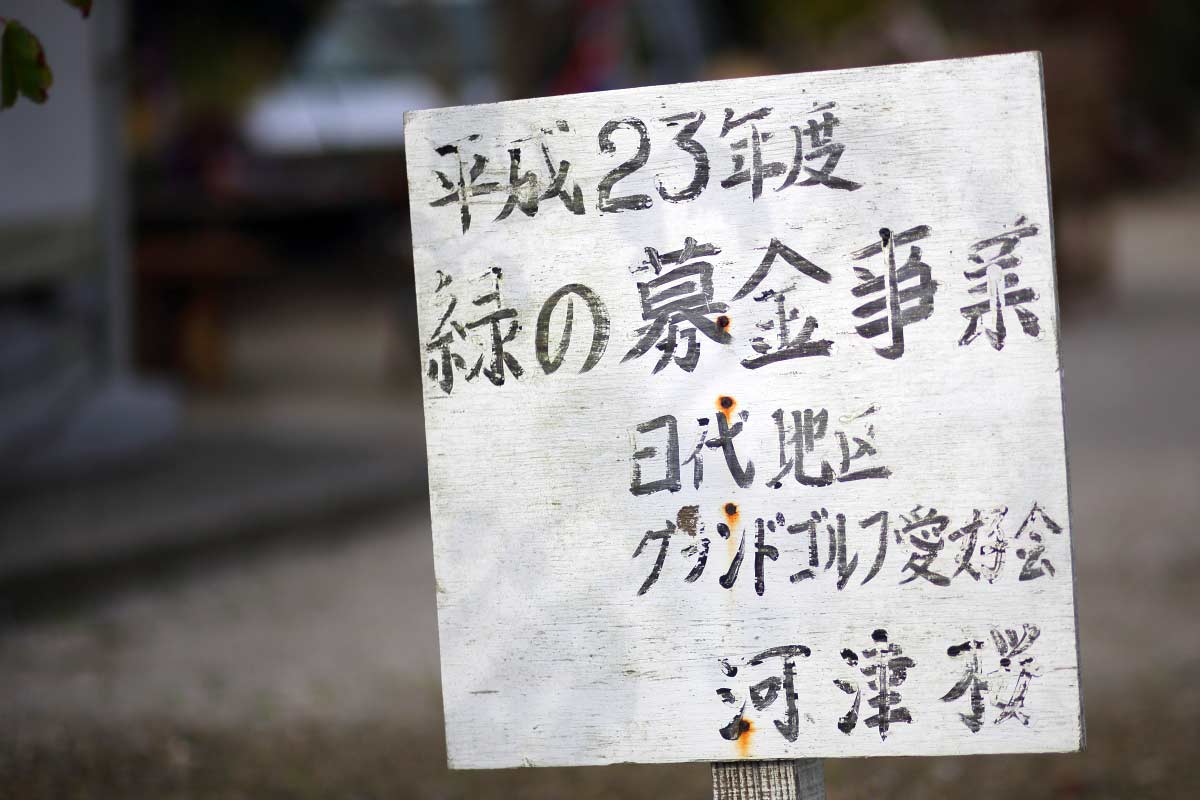 平成23年度
緑の募金事業
日代地区
グランドゴルフ愛好会
河津桜